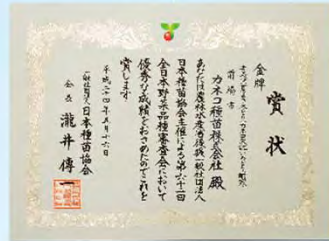 賞状
金牌
前橋市
カネコ種苗株式会社 殿
あなたは農林水産省後援一般社団法人
日本種苗協会主催による第六十一回
全日本野菜品種審査会において
優秀な成績をおさめたのでこれを
賞します
平成二十四年五月十六日
一般社団法人日本種苗協会
会長 瀧井傳一